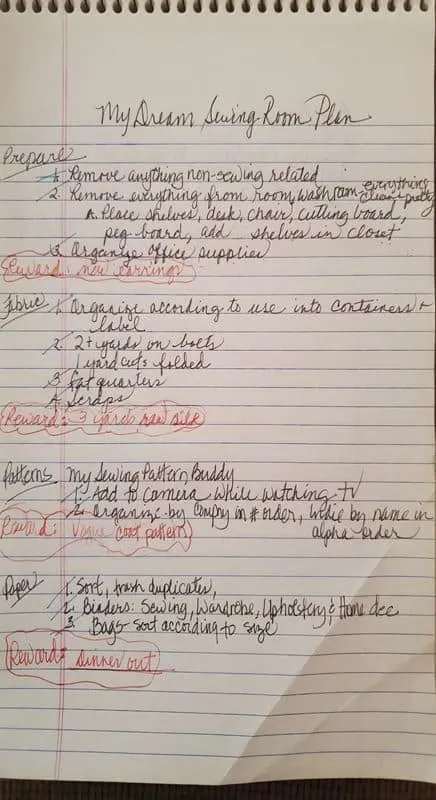 My Dream Sewing Room Plan
Prepare
1. Remove anything non-sewing related
2. Remove everything from room, wash room everything clean & pretty
A. Place shelves, desk, chair, cutting board,
peg board, add shelves in closet
3. Organize office supplies
Reward: new earrings
Fabric 1. Organize according to use into containers +
label
2. 2+ yards on bolts
1 yard cuts folded
3. fat quarters
4. Scraps
Reward: 3 yards raw silk
Patterns My Sewing Pattern Buddy
1. Add to camera while watching TV
2. Organize by compny in # order, Indie by name in
alpha order
Reward: Vogue coat pattern
Paper 1. Sort, trash duplicates,
2. Binders: Sewing, Wardrobe, Upholstery & Home dec
3. Bags sort according to size
Reward: dinner out